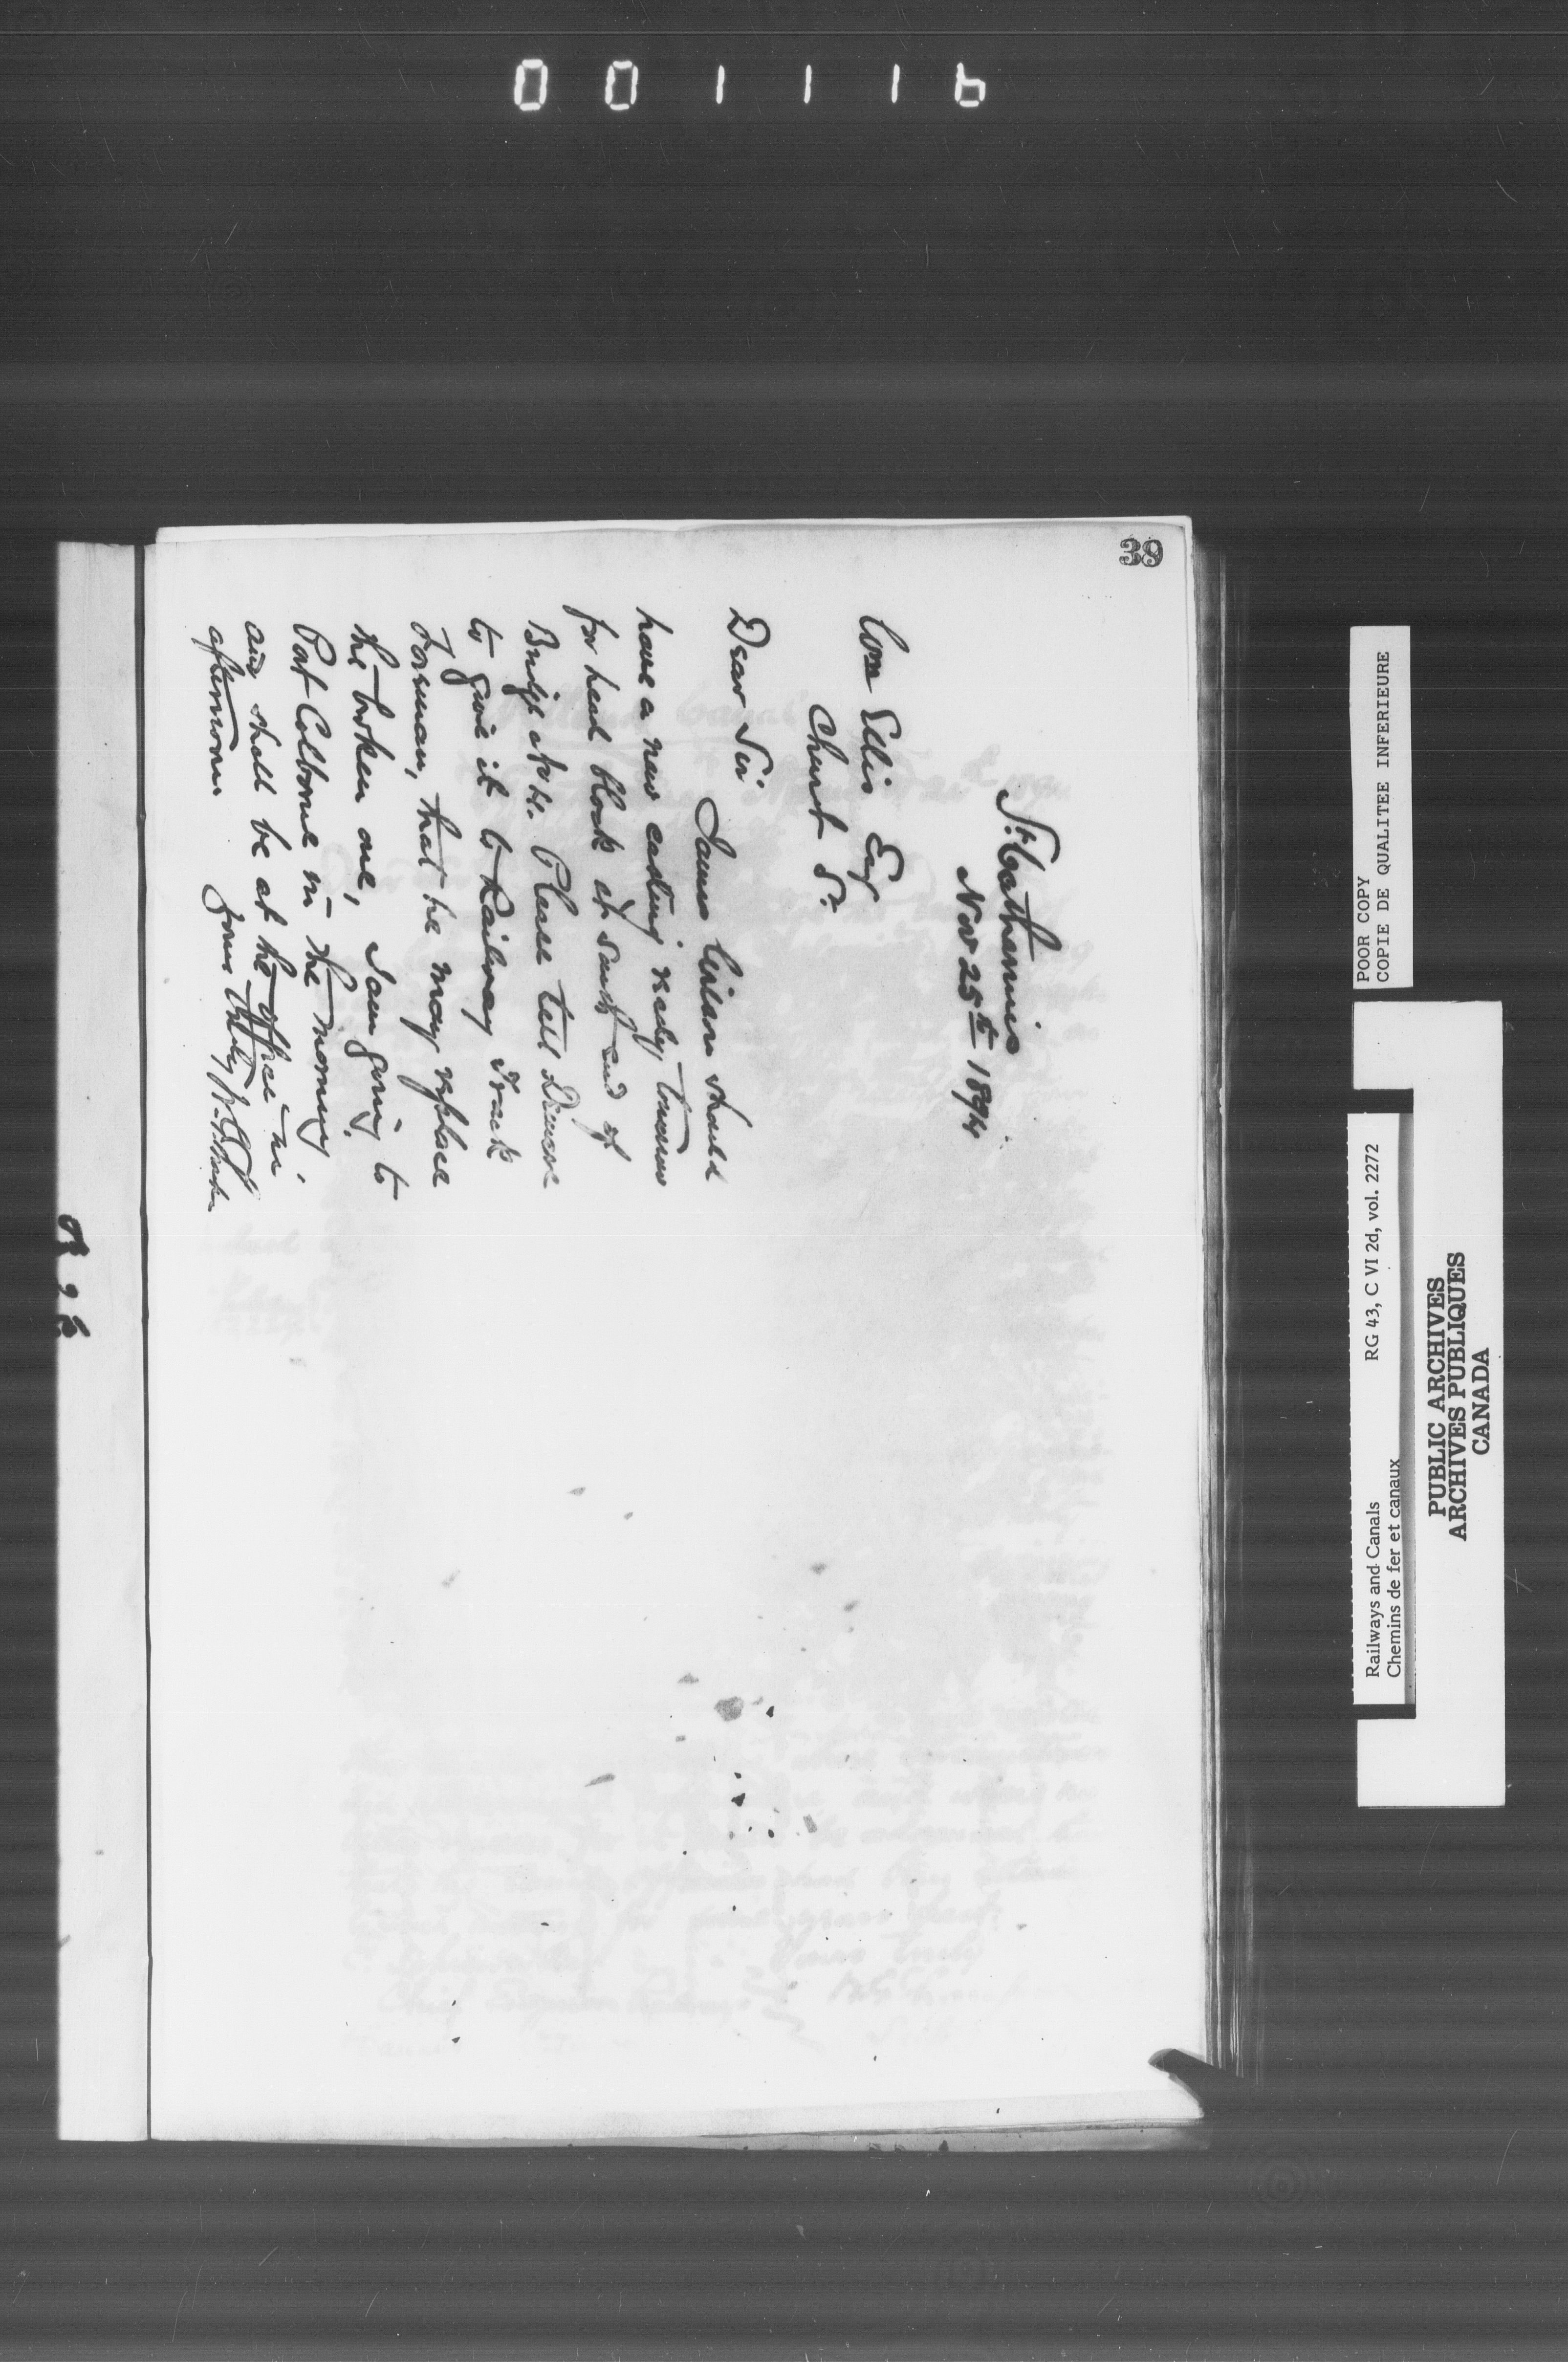 001116
39
St. Catharines
Nov 25th 1894
Wm Ellis Esq
Chart St.
Dear Sir
James Wilson should
have a new casting ready tomorrow
for head block at South end of
Bridge No 4. Please tell
to give it to Railway Track
Foreman, that he may replace
the broken one, I am going to
Port Colborne in the morning
and shall be at the office in
afternoon
Yours truly W. G. Thompson
POOR COPY
COPIE DE QUALITEE INFERIEURE
RG 43, C VI 2d, vol. 2272
Railways and Canals
Chemins de fer et canaux
PUBLIC ARCHIVES
ARCHIVES PUBLIQUES
CANADA